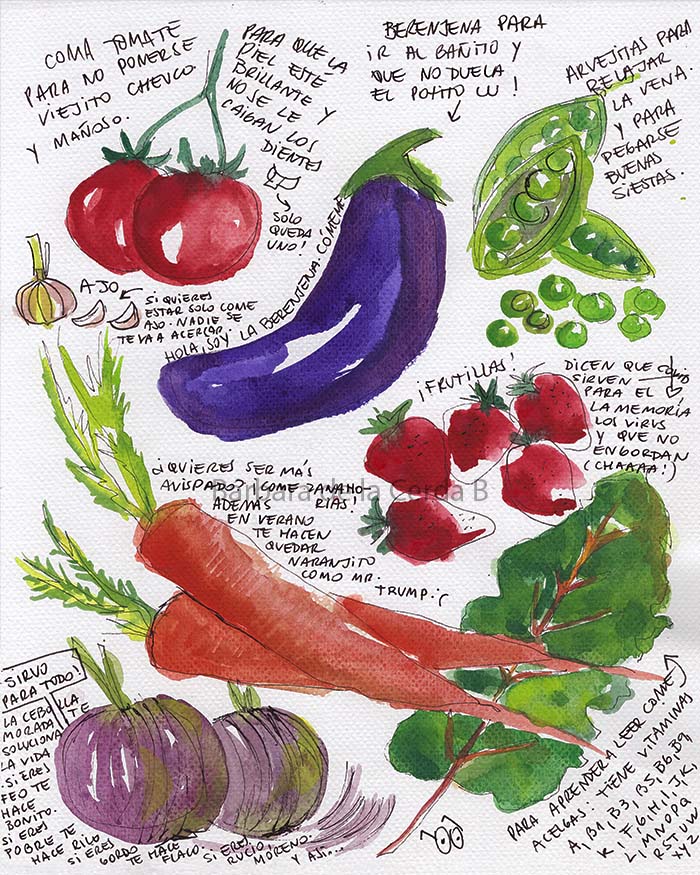 COMA TOMATE
PARA NO PONERSE
VIEJITO CHEUCO
Y MAÑOSO.
PARA QUE LA
PIEL ESTÉ
BRILLANTE Y
NO SE LE
CAIGAN LOS
DIENTES
SOLO
QUEDA
UNO!
BERENJENA PARA
IR AL BAÑITO Y
QUE NO DUELA
EL POTITO UU !
ARVEJITAS PARA
RELAJAR
LA VENA.
Y PARA
PEGARSE
BUENAS
SIESTAS.
AJO
SI QUIERES
ESTAR SOLO COME
AJO. NADIE SE
TE VA A ACERCAR.
HOLA, SOY LA BERENJENA. CÓMEME
¡FRUTILLAS!
DICEN QUE
SIRVEN
PARA EL
LA MEMORIA
LOS VIRUS
Y QUE NO
ENGORDAN
(CHAAAA!)
¿QUIERES SER MÁS
AVISPADO? ¡COME ZANAHO
RIAS!
ADEMÁS
EN VERANO
TE HACEN
QUEDAR
NARANJITO
COMO MR.
TRUMP :(
Bárbara de la Cerda B
SIRVO
PARA TODO!
LA CEBOLLA
MORADA TE
SOLUCIONA
LA VIDA
SI ERES
FEO TE
HACE
BONITO.
SI ERES
POBRE TE
HACE RICO
SI ERES
GORDO TE HACE
FLACO. SI ERES
RUCIO,
MORENO.
Y ASÍ...
PARA APRENDER A LEER COME
ACELGAS: TIENE VITAMINAS
A, B1, B3, B5, B6, B9
K, F, G, H, I, J, K,
L, M, N, O, P, Q,
R, S, T, U, V, W
XYZ